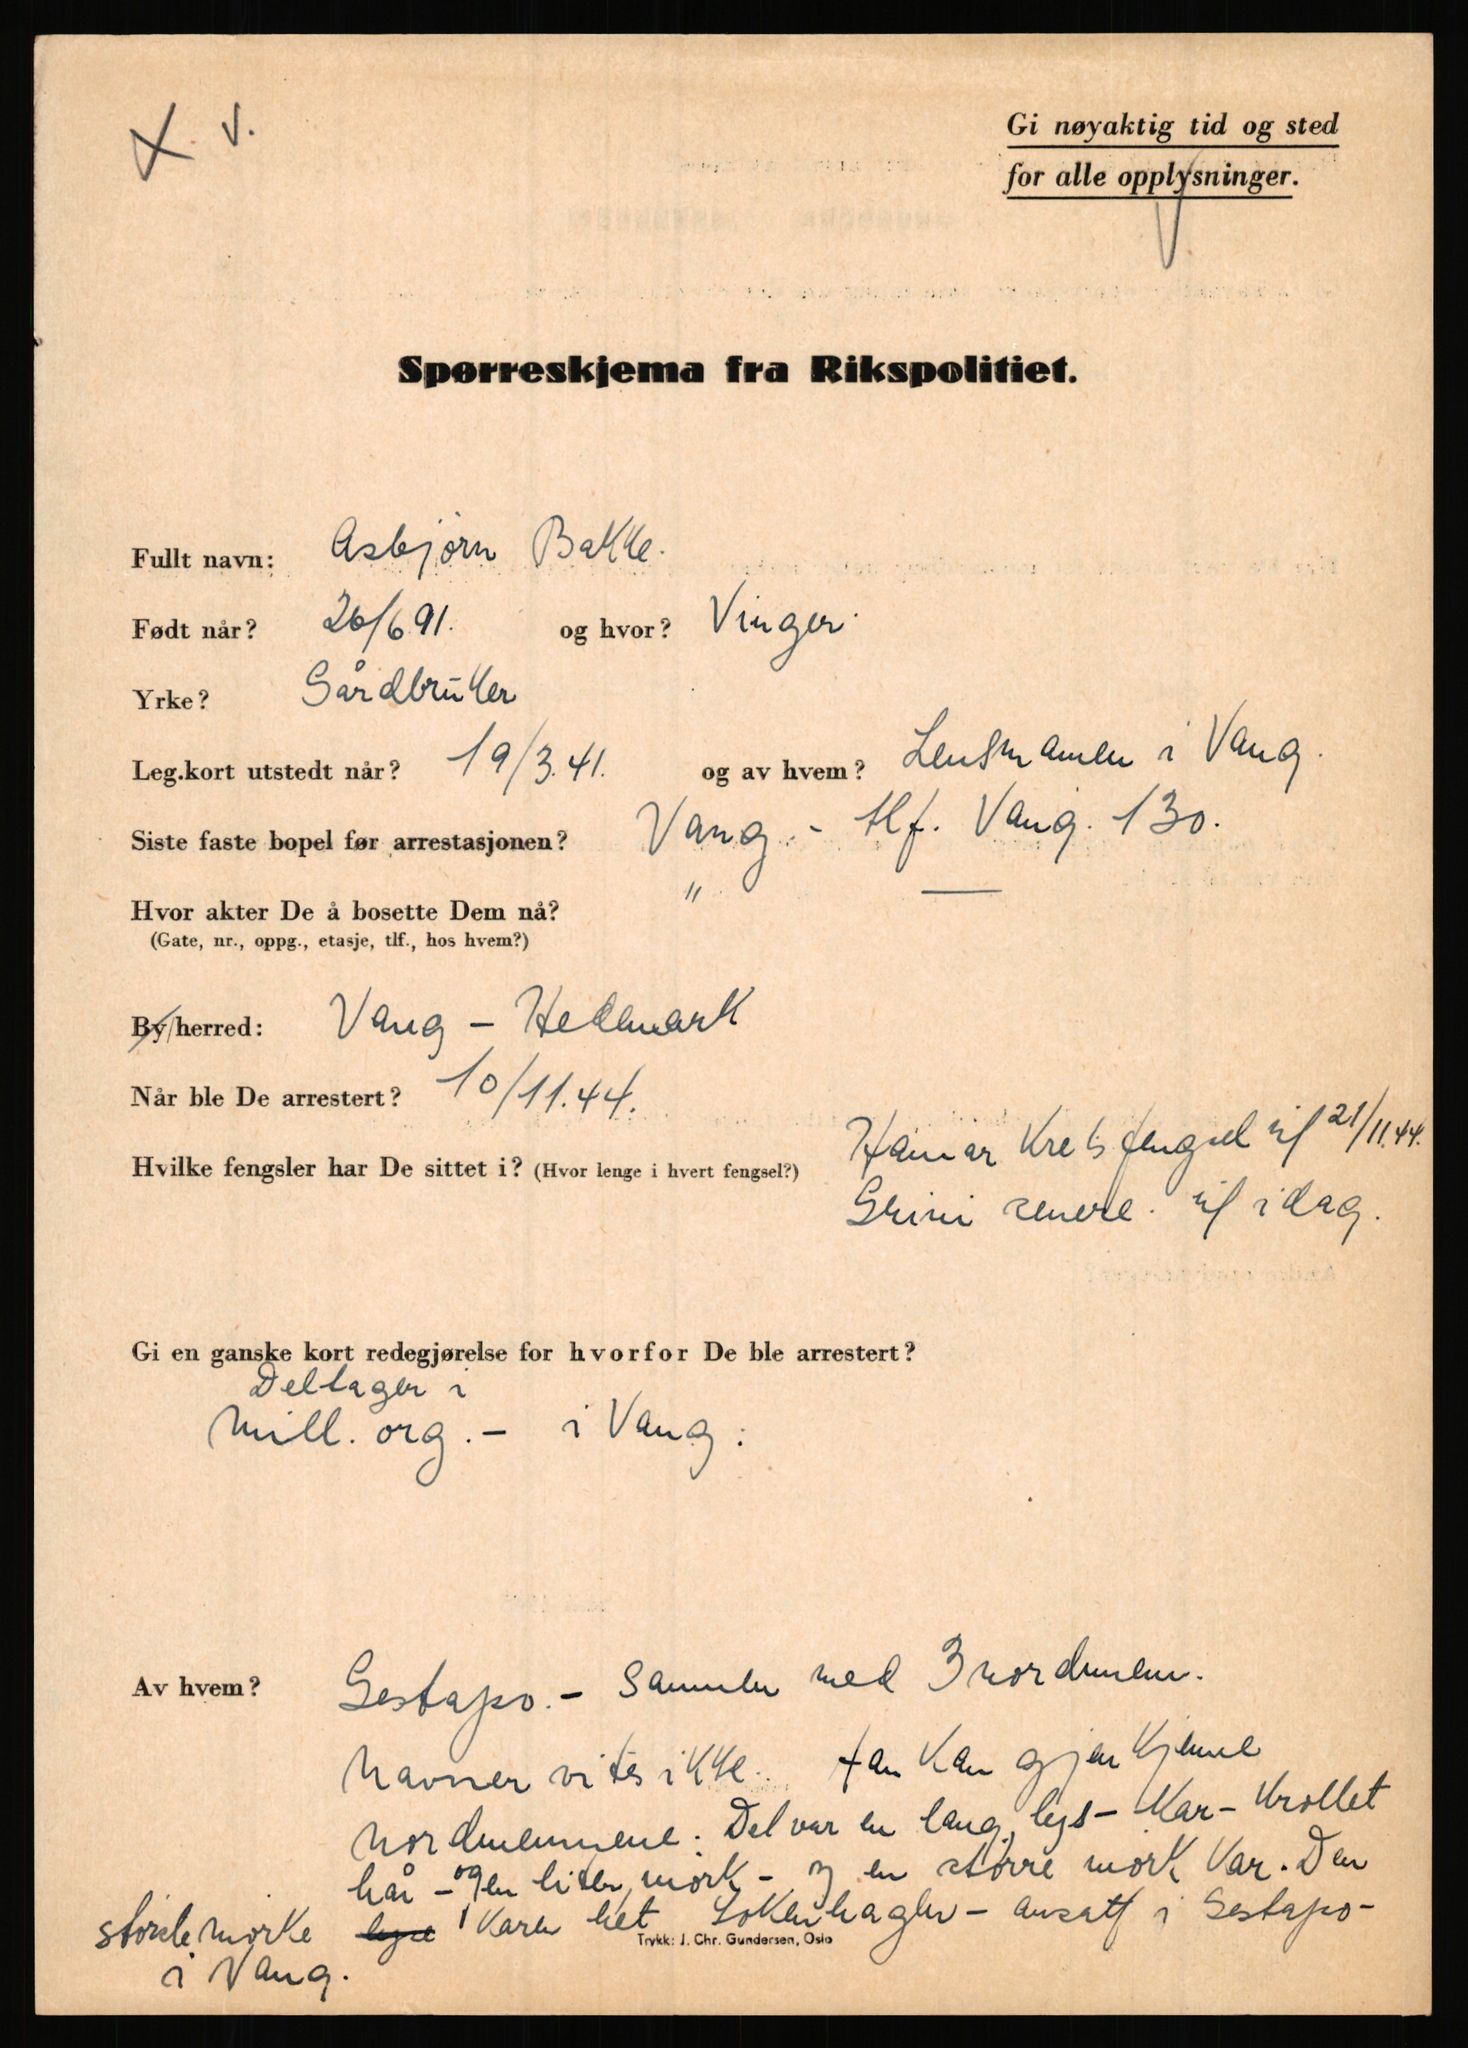 X. V.
Gi nøyaktig tid og sted
for alle opplysninger.
Spørreskjema fra Rikspolitiet.
Fullt navn: Asbjørn Bakke.
Født når? 26/6 91. og hvor? Vinger.
Yrke? Gårdbruker
Leg.kort utstedt når? 19/3.41. og av hvem? Lensmannen i Vang.
Siste faste bopel før arrestasjonen? Vang. - tlf. Vang. 130.
Hvor akter De å bosette Dem nå? " —
(Gate, nr., oppg., etasje, tlf., hos hvem?)
By/herred: Vang - Hedmark
Når ble De arrestert? 10/11.44.
Hvilke fengsler har De sittet i? (Hvor lenge i hvert fengsel?) Hamar Kretsfengsel til 21/11.44.
Grini senere. til idag.
Gi en ganske kort redegjørelse for hvorfor De ble arrestert?
Deltager i
Mill. org. - i Vang.
Av hvem? Gestapo. - Sammen med 3 nordmenn.
Navner vites ikke. Han kan gjenkjenne
nordmennene. Det var en lang, lys - kar - krøllet
hår - og en liten mørk - og en større mørk kar. Den
største mørke lyse karen het Lokenhagen - ansatt i Gestapo -
i Vang.
Trykk: J. Chr. Gundersen, Oslo